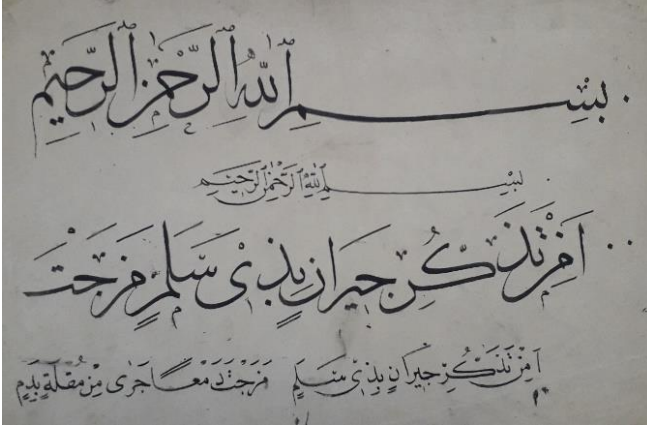 بِسْمِ اللّٰهِ الرَّحْمٰنِ الرَّحِيْمِ
بِسْمِ اللّٰهِ الرَّحْمٰنِ الرَّحِيْمِ
اَمِنْ تَذَكُّرِ جِيْرَانٍ بِذِيْ سَلَمٍ مَزَجْتَ
اَمِنْ تَذَكُّرِ جِيْرَانٍ بِذِيْ سَلَمٍ مَزَجْتَ دَمْعًا جَرٰى مِنْ مُقْلَةٍ بِدَمٍ